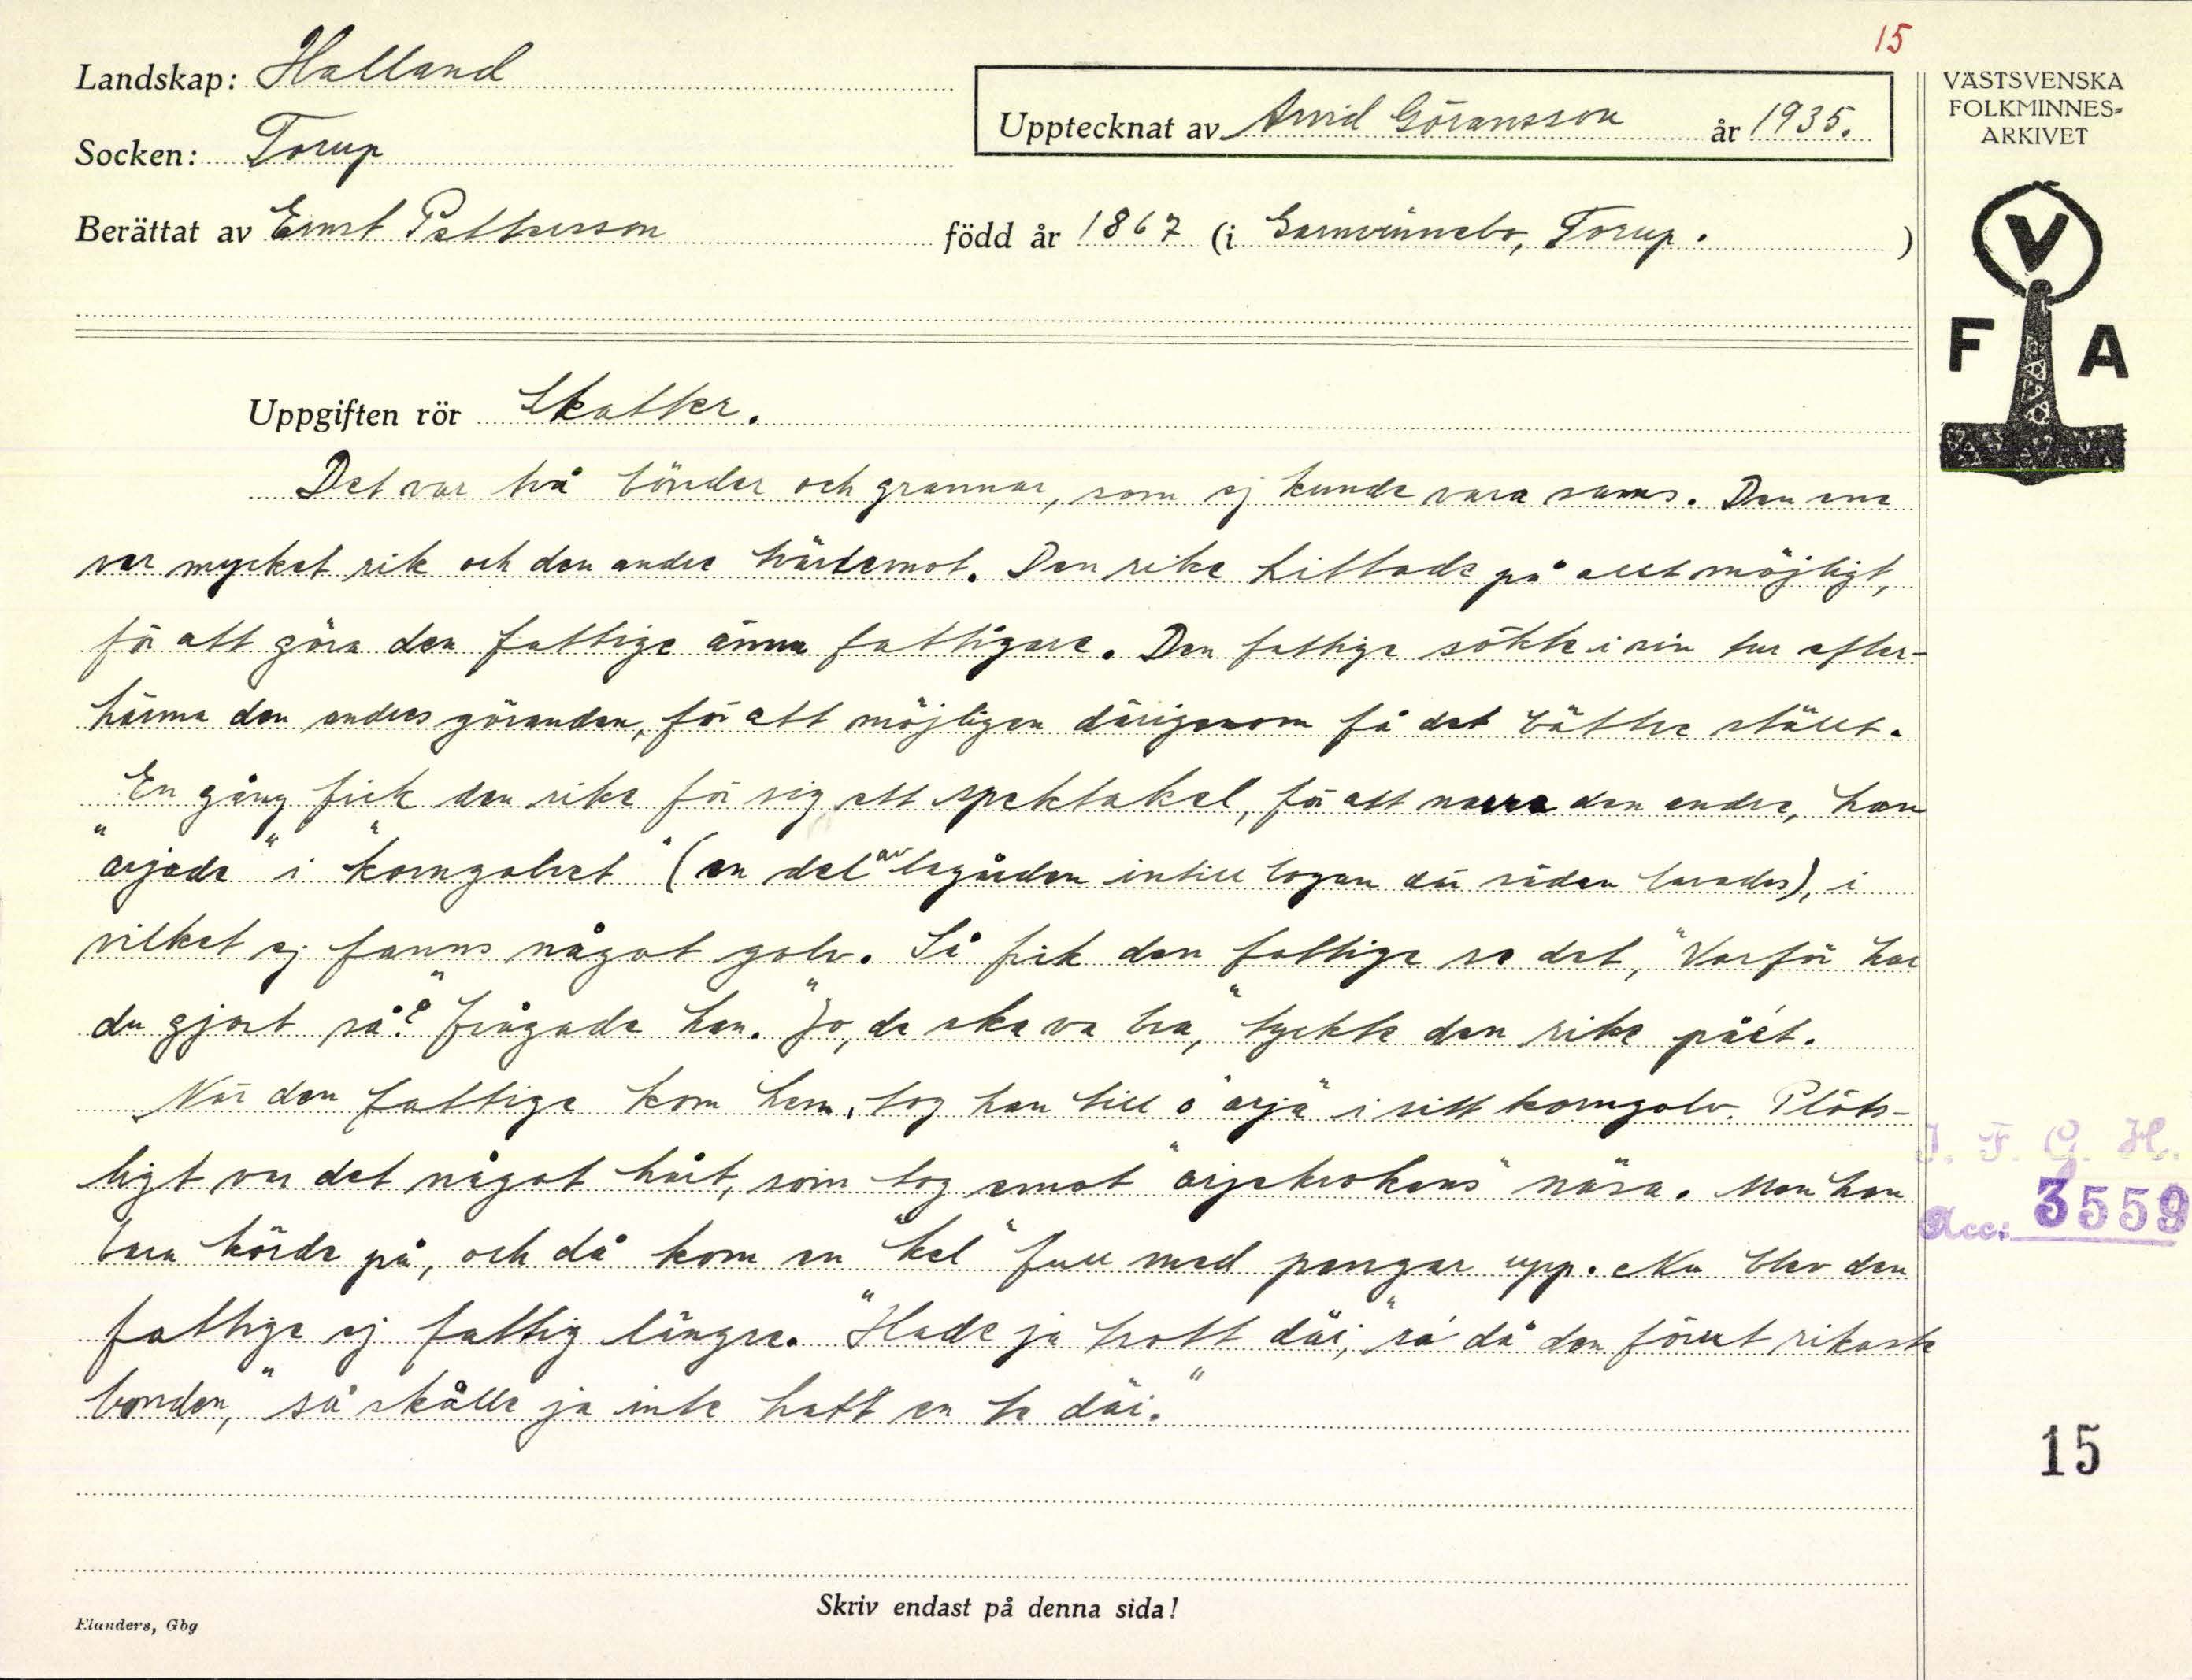 15
Landskap: Halland
Upptecknat av Arvid Göransson år 1935.
Socken: Torup
Berättat av Ernst Pettersson född år 1867 (i Torup. )
VÄSTSVENSKA
FOLKMINNES-
ARKIVET
V
F A
Uppgiften rör Skatter.
Det var två bönder och grannar, som ej kunde vara sams. Den ene
var mycket rik och den andre tvärtemot. Den rike hittade på allt möjligt,
för att göra den fattige ännu fattigare. Den fattige sökte i sin tur efter-
härma den andres göranden, för att möjligen därigenom få det bättre ställt.
En gång fick den rike för sig ett spektakel, för att narra den andre, han
"arjade" i "korngolvet" (en del av lagården intill logan där säden lavades), i
vilket ej fanns något golv. Så fick den fattige se det, "Varför har
du gjort så?" frågade han. "Jo, de ska va bra," tyckte den rike påét.
När den fattige kom hem, tog han till å "arja" i sitt korngolv. Plöts-
ligt var det något hårt, som tog emot "arjekrokens" näsa. Men han
bara körde på, och då kom en "kel" full med pengar upp. Nu blev den
fattige ej fattig längre. "Hade ja trott däi," sá då den förut rikaste
bonden, "så skålle ja inte hatt en te däi."
I. F. G. H.
Acc: 3559
15
Skriv endast på denna sida!
Elanders, Gbg